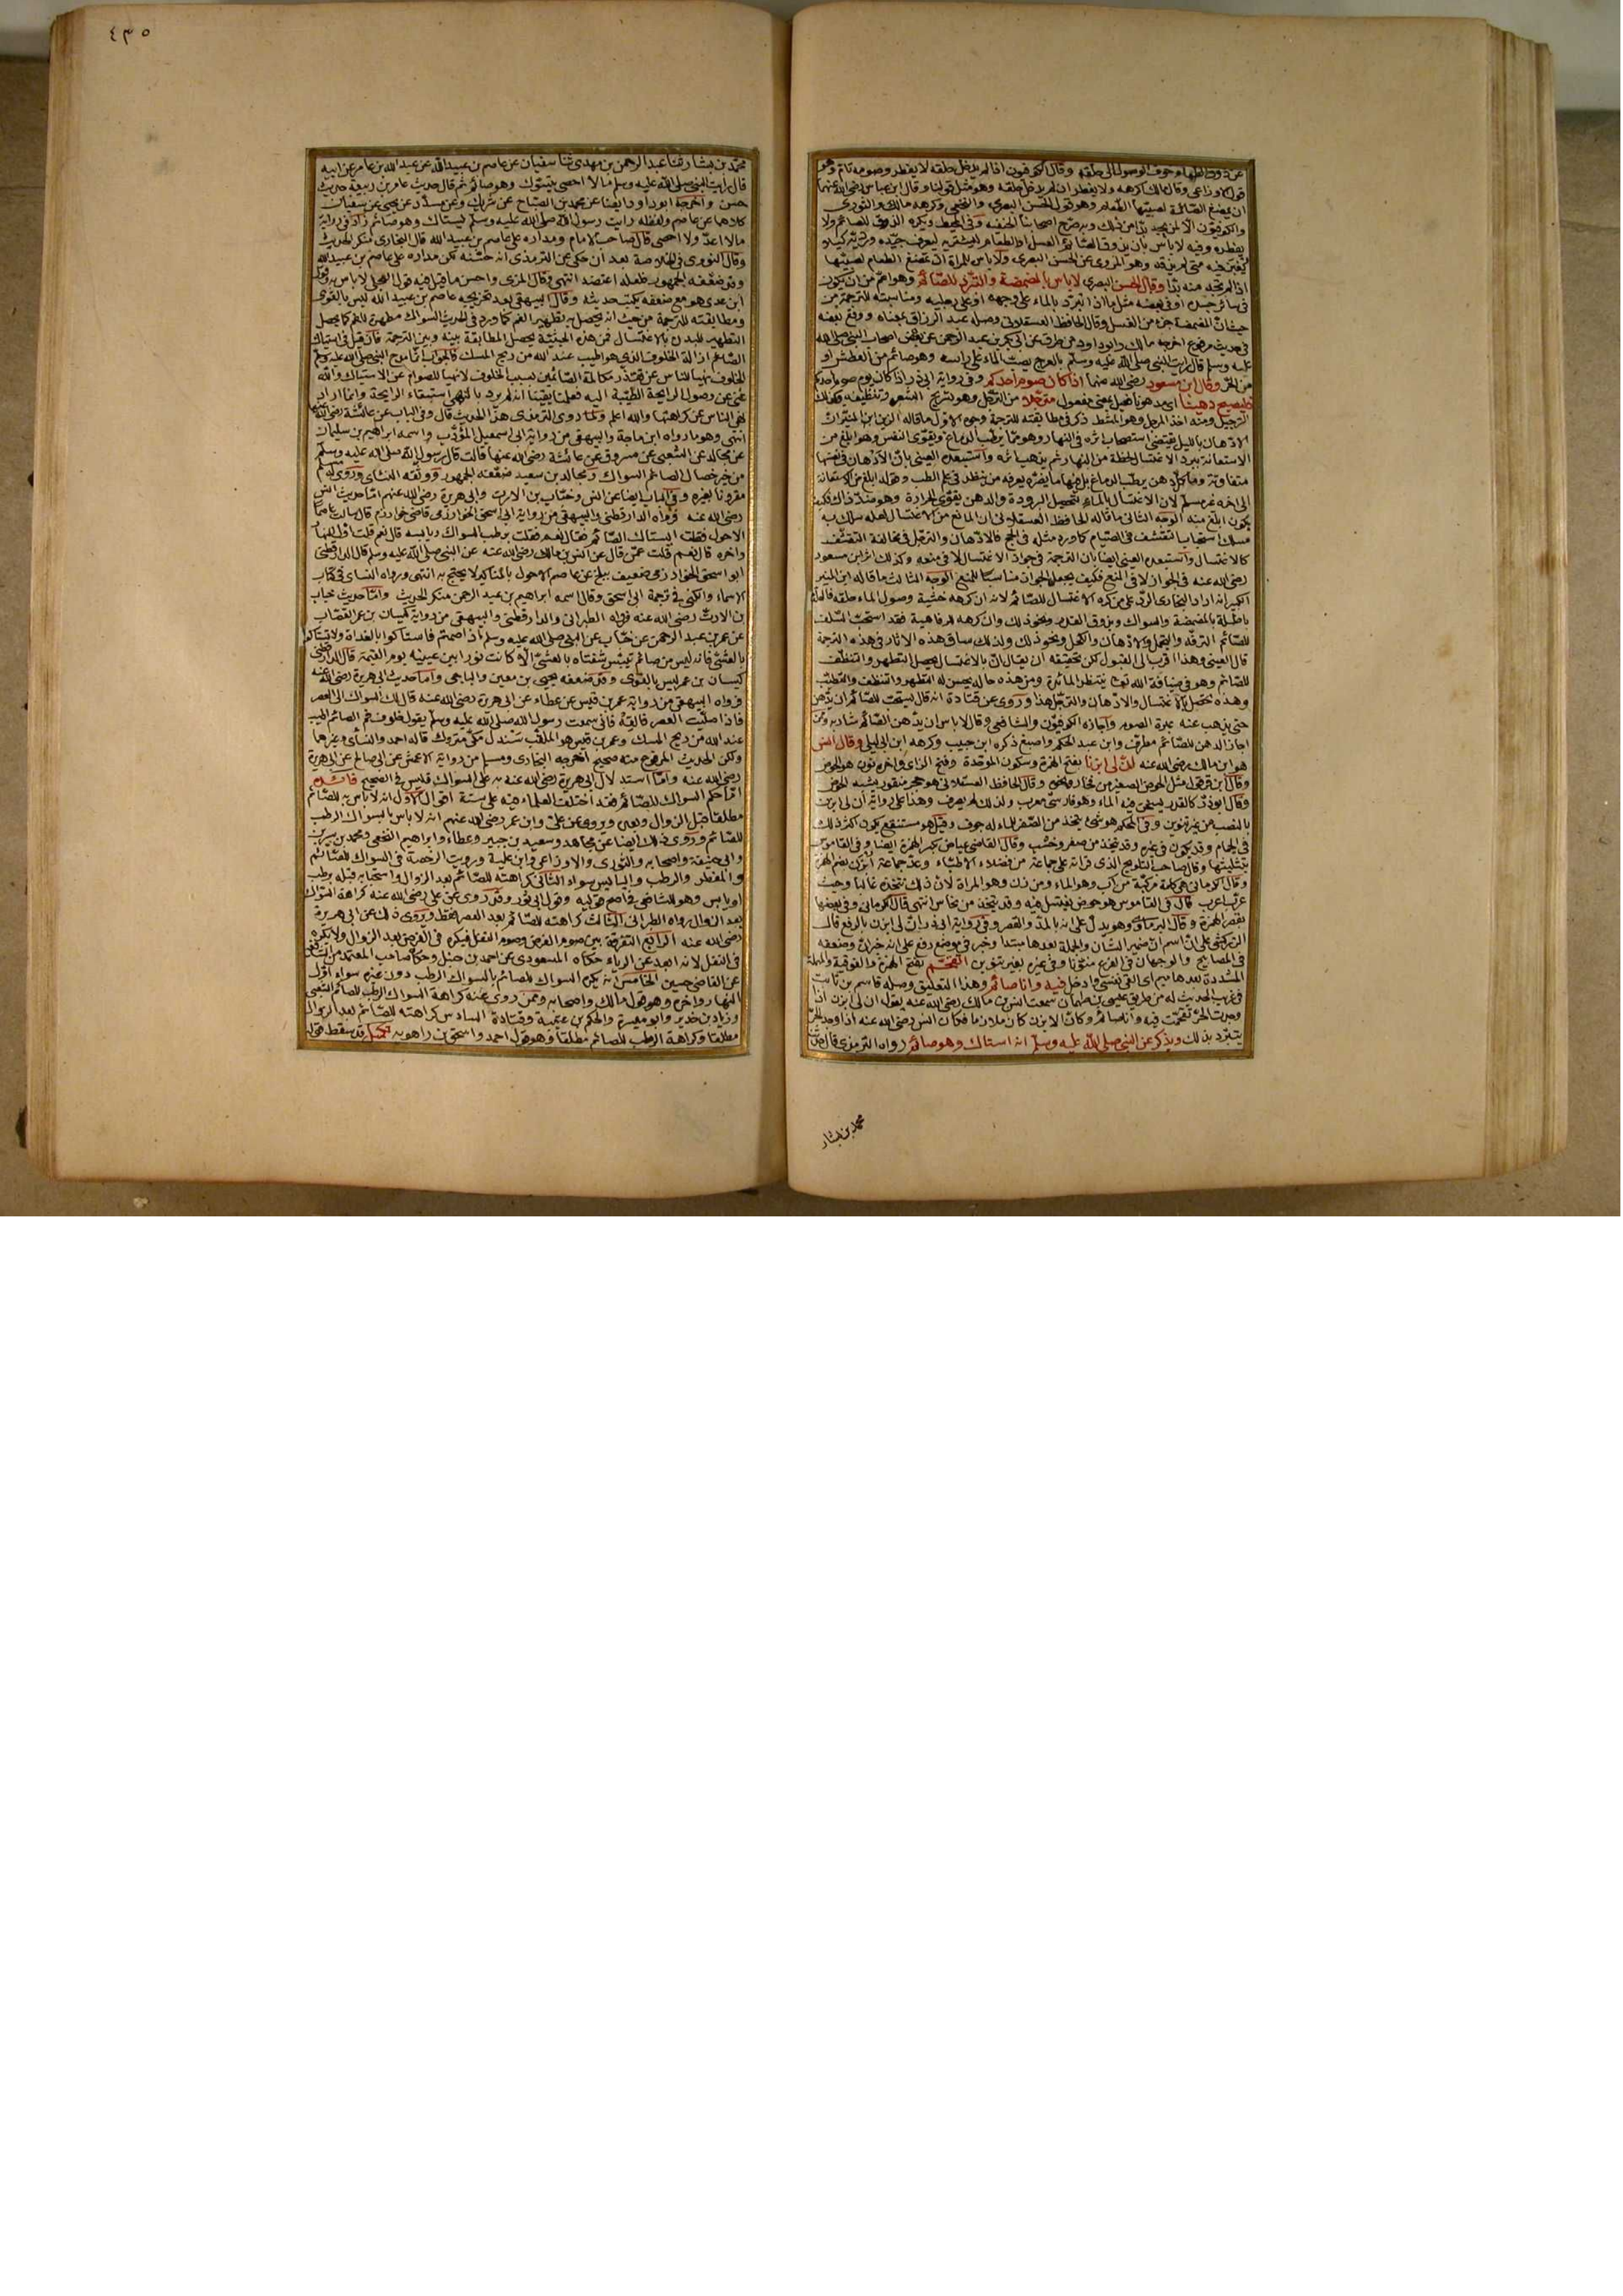 عن ذوق الطعام خوف الوصول الى حلقه وقال الكوفيون اذا لم يدخل حلقه لا يفطر وصومه تام وهو
قول الاوزاعى وقال مالك اكرهه ولا يفطر ان لم يدخل حلقه وهو مثل قولنا وقال ابن عباس رضى الله عنهما
ان تمضغ الصائمة لصبيها الطعام وهو قول الحسن البصرى والنخعى وكرهه مالك والثورى
والكوفيون الا لمن لم يجد بدا من ذلك وبه صرح اصحابنا الحنفية وفى المحيط ويكره الذوق للصائم ولا
يفطره وفيه لا بأس بان يذوق الصائم العسل او الطعام ليشتريه ليعرف جيده ورديه كيلا
يغبن فيه متى لم يذقه وهو المروى عن الحسن البصرى ولا بأس للمرأة ان تمضغ الطعام لصبيها
اذا لم تجد منه بدا وقال الحسن البصرى لا بأس بالمضمضة والتبرد للصائم وهو اعم من ان يكون
فى سائر جسده او فى بعضه مثل ما اذا تبرد بالماء على وجهه او على رجليه ومناسبته للترجمة من
حيث ان المضمضة جزء من الغسل وقال الحافظ العسقلانى وصله عبد الرزاق بمعناه ووقع بعضه
فى حديث مرفوع اخرجه مالك وابو داود من طريق ابى بكر بن عبد الرحمن عن بعض اصحاب النبى صلى الله
عليه وسلم قال رايت النبى صلى الله عليه وسلم بالعرج يصب الماء على راسه وهو صائم من العطش او
من الحر وقال ابن مسعود رضى الله عنه اذا كان صوم احدكم وفى رواية ابى ذر اذا كان يوم صوم احدكم
فليصبح دهينا اى مدهونا فعيل بمعنى مفعول مترجلا من الترجل وهو تسريح الشعر وتنظيفه وكذلك
الترجيل ومنه اخذ المرجل وهو المشط ذكر فى مطابقته للترجمة وجوه الاول ما قاله الزين ابن المنير ان
الادهان بالليل يقتضى استصحاب اثره فى النهار وهو مما يرطب الدماغ ويقوى النفس وهو ابلغ من
الاستعانة ببرد الاغتسال لحظة من النهار ثم يذهب اثره واستبعده العينى بان الادهان فى نفسها
متفاوتة وما كل دهن يرطب الدماغ بل فيها ما يضره يعرفه من ينظر فى علم الطب وقوله ابلغ من الاستعانة
الى اخره غير مسلم لان الاغتسال بالماء لتحصيل البرودة والدهن يقوى الحرارة وهو ضد ذاك فكيف
يكون ابلغ منه الوجه الثانى ما قاله الحافظ العسقلانى ان المانع من الاغتسال لعله سلك به
مسلك استحباب التقشف فى الصيام كما ورد مثله فى الحج فالادهان والترجل فى مخالفة التقشف
كالاغتسال واستبعده العينى ايضا بان الترجمة فى جواز الاغتسال لا فى منعه وكذلك اثر ابن مسعود
رضى الله عنه فى الجواز لا فى المنع فكيف يجعل الجواز مناسبا للمنع الوجه الثالث ما قاله ابن المنير
الكبير انه اراد البخارى الرد على من كره الاغتسال للصائم لانه ان كرهه خشية وصول الماء حلقه فالعلة
باطلة بالمضمضة والسواك وبذوق القدر ونحو ذلك وان كرهه للرفاهية فقد استحب السلف
للصائم الترفه والتجمل والادهان والكحل ونحو ذلك ولذلك ساق هذه الاثار فى هذه الترجمة
قال العينى وهذا اقرب الى القبول لكن تحقيقه ان يقال ان بالاغتسال يحصل التطهر والتنظف
للصائم وهو فى ضيافة الله تعالى ينتظر المائدة ومن هذه حاله يحسن له التطهر والتنظف والتطيب
وهذه تحصل بالاغتسال والادهان والترجل هذا وروى عن قتادة انه قال يستحب للصائم ان يدهن
حتى يذهب عنه غبرة الصوم واجازه الكوفيون والشافعى وقال لا بأس ان يدهن الصائم شاربه وممن
اجاز الدهن للصائم مطرف وابن عبد الحكم واصبغ ذكره ابن حبيب وكرهه ابن ابى ليلى وقال انس
هو ابن مالك رضى الله عنه ان لى ابزنا بفتح الهمزة وسكون الموحدة وفتح الزاى واخره نون هو الحوض
وقال ابن قرقول مثل الحوض الصغير من فخار ونحوه وقال الحافظ العسقلانى هو حجر منقور يشبه الحوض
وقال ابو ذر كالقدر يسخن فيه الماء وهو فارسى معرب ولذلك لم يصرف وهذا على رواية ان لى ابزن
بالنصب من غير تنوين وفى المحكم هو شىء يتخذ من الصفر للماء له جوف وقيل هو مستنقع يكون اكثر ذلك
فى الحمام وقد يكون فى غيره وقد يتخذ من صفر وخشب وقال القاضى عياض بكسر الهمزة ايضا وفى القاموس
بتثليثها وقال صاحب التلويح الذى قرأته على جماعة من فضلاء الاطباء وعد جماعة ابزن بضم الهمزة
وقال الكرمانى هى كلمة مركبة من اب وهو الماء ومن زن وهو المراة لان ذلك تتخذه غالبا وحيث
عرب اعرب قال فى القاموس هو حوض يغتسل فيه وقد يتخذ من نحاس انتهى قال الكرمانى وفى بعضها
بقصر الهمزة وقال البرماوى وهو يدل على انه بالمد والقصر وفى رواية ابى ذر ان لى ابزن بالرفع قال
الزركشى على ان اسم ان ضمير الشان والجملة بعدها مبتدا وخبر فى موضع رفع على انه خبر ان وضعفه
فى المصابيح والوجهان فى الفرع منونا وفى غيره بغير تنوين اتقحم بفتح الهمزة والفوقية والمهملة
المشددة بعدها ميم اى القى نفسى وادخل فيه وانا صائم وهذا التعليق وصله قاسم بن ثابت
فى غريب الحديث له من طريق عيسى بن طهمان سمعت انس بن مالك رضى الله عنه يقول ان لى ابزن اذا
وجدت الحر تقحمت فيه وانا صائم وكان الابزن كان ملان ماء فكان انس رضى الله عنه اذا وجد الحر
يتبرد بذلك ويذكر عن النبى صلى الله عليه وسلم انه استاك وهو صائم رواه الترمذى قال حدثنا
محمد بن بشار
٤٣٥
محمد بن بشار ثنا عبد الرحمن بن مهدى ثنا سفيان عن عاصم بن عبيد الله عن عبد الله بن عامر عن ابيه
قال رايت النبى صلى الله عليه وسلم ما لا احصى يتسوك وهو صائم ثم قال حديث عامر بن ربيعة حديث
حسن واخرجه ابو داود ايضا عن محمد بن الصباح عن شريك وعن مسدد عن يحيى عن سفيان
كلاهما عن عاصم ولفظه رايت رسول الله صلى الله عليه وسلم يستاك وهو صائم زاد فى رواية
ما لا اعد ولا احصى قال صاحب الامام ومداره على عاصم بن عبيد الله قال البخارى منكر الحديث
وقال النووى فى الخلاصة بعد ان حكى عن الترمذى انه حسنه لكن مداره على عاصم بن عبيد الله
وقد ضعفه الجمهور فلعله اعتضد انتهى وقال المزى واحسن ما قيل فيه قول العجلى لا بأس به وقول
ابن عدى هو مع ضعفه يكتب حديثه وقال البيهقى بعد تخريجه عاصم بن عبيد الله ليس بالقوى
ومطابقته للترجمة من حيث انه يحصل به تطهير الفم كما ورد فى الحديث السواك مطهرة للفم كما يحصل
التطهير للبدن بالاغتسال فمن هذه الحيثية يحصل المطابقة بينه وبين الترجمة فان قيل فى استياك
الصائم ازالة الخلوف الذى هو اطيب عند الله من ريح المسك فالجواب انما مدح النبى صلى الله عليه وسلم
الخلوف نهيا للناس عن تقذر مكالمة الصائمين بسبب الخلوف لا نهيا للصوام عن الاستياك والله
غنى عن وصول الرايحة الطيبة اليه فعلمنا يقينا انه لم يرد بالنهى استبقاء الرايحة وانما اراد
نهى الناس عن كراهتها والله اعلم ولما روى الترمذى هذا الحديث قال وفى الباب عن عائشة رضى الله عنها
انتهى وهو ما رواه ابن ماجة والبيهقى من رواية ابى اسمعيل المؤدب واسمه ابراهيم بن سليمان
عن مجالد عن الشعبى عن مسروق عن عائشة رضى الله عنها قالت قال رسول الله صلى الله عليه وسلم
من خير خصال الصائم السواك ومجالد بن سعيد ضعفه الجمهور ووثقه النسائى وروى له مسلم
مقرونا بغيره وفى الباب ايضا عن انس وخباب بن الارت وابى هريرة رضى الله عنهم اما حديث انس
رضى الله عنه فرواه الدارقطنى والبيهقى من رواية ابى اسحق الخوارزمى قاضى خوارزم قال سالت عاصما
الاحول فقلت ايستاك الصائم فقال نعم فقلت برطب السواك ويابسه قال نعم قلت اول النهار
واخره قال نعم قلت عمن قال عن انس بن مالك رضى الله عنه عن النبى صلى الله عليه وسلم قال الدارقطنى
ابو اسحق الخوارزمى ضعيف يبلغ عن عاصم الاحول بالمناكير لا يحتج به انتهى ورواه النسائى فى كتاب
الاسماء والكنى فى ترجمة ابى اسحق وقال اسمه ابراهيم بن عبد الرحمن منكر الحديث واما حديث خباب
بن الارت رضى الله عنه فرواه الطبرانى والدارقطنى والبيهقى من رواية كيسان بن عمر القصاب
عن عمر بن عبد الرحمن عن خباب عن النبى صلى الله عليه وسلم اذا صمتم فاستاكوا بالغداة ولا تستاكوا
بالعشى فانه ليس من صائم تيبس شفتاه بالعشى الا كانت نورا بين عينيه يوم القيمة قال الدارقطنى
كيسان بن عمر ليس بالقوى وقد ضعفه يحيى بن معين والساجى واما حديث ابى هريرة رضى الله عنه
فرواه البيهقى من رواية عمر بن قيس عن عطاء عن ابى هريرة رضى الله عنه قال لك السواك الى العصر
فاذا صليت العصر فالقه فانى سمعت رسول الله صلى الله عليه وسلم يقول خلوف فم الصائم اطيب
عند الله من ريح المسك وعمر بن قيس هو الملقب سندل مكى متروك قاله احمد والنسائى وغيرهما
ولكن الحديث المرفوع منه صحيح اخرجه البخارى ومسلم من رواية الاعمش عن ابى صالح عن ابى هريرة
رضى الله عنه واما استدلال ابى هريرة رضى الله عنه به على السواك فليس فى الصحيح فائدة
اما حكم السواك للصائم فقد اختلف العلماء فيه على ستة اقوال الاول انه لا بأس به للصائم
مطلقا قبل الزوال وبعده ويروى عن على وابن عمر رضى الله عنهم انه لا بأس بالسواك الرطب
للصائم وروى ذلك ايضا عن مجاهد وسعيد بن جبير وعطاء وابراهيم النخعى ومحمد بن سيرين
وابى حنيفة واصحابه والثورى والاوزاعى وابن علية ورويت الرخصة فى السواك للصائم
والمفطر والرطب واليابس سواء الثانى كراهته للصائم بعد الزوال واستحبابه قبله برطب
او يابس وهو للشافعى فى اصح قوليه وقول ابى ثور وقد روى عن على رضى الله عنه كراهة السواك
بعد الزوال رواه الطبرانى الثالث كراهته للصائم بعد العصر فقط ويروى ذلك عن ابى هريرة
رضى الله عنه الرابع التفرقة بين صوم الفرض وصوم النفل فيكره فى الفرض بعد الزوال ولا يكره
فى النفل لانه ابعد عن الرياء حكاه المسعودى عن احمد بن حنبل وحكاه صاحب المعتمد من الشافعية
عن القاضى حسين الخامس انه يكره السواك للصائم بالسواك الرطب دون غيره سواء اول
النهار واخره وهو قول مالك واصحابه وممن روى عنه كراهة السواك الرطب للصائم الشعبى
وزياد بن حدير وابو ميسرة والحكم بن عتيبة وقتادة السادس كراهته للصائم بعد الزوال
مطلقا وكراهة الرطب للصائم مطلقا وهو قول احمد واسحق بن راهويه تكميل قد سقط قوله